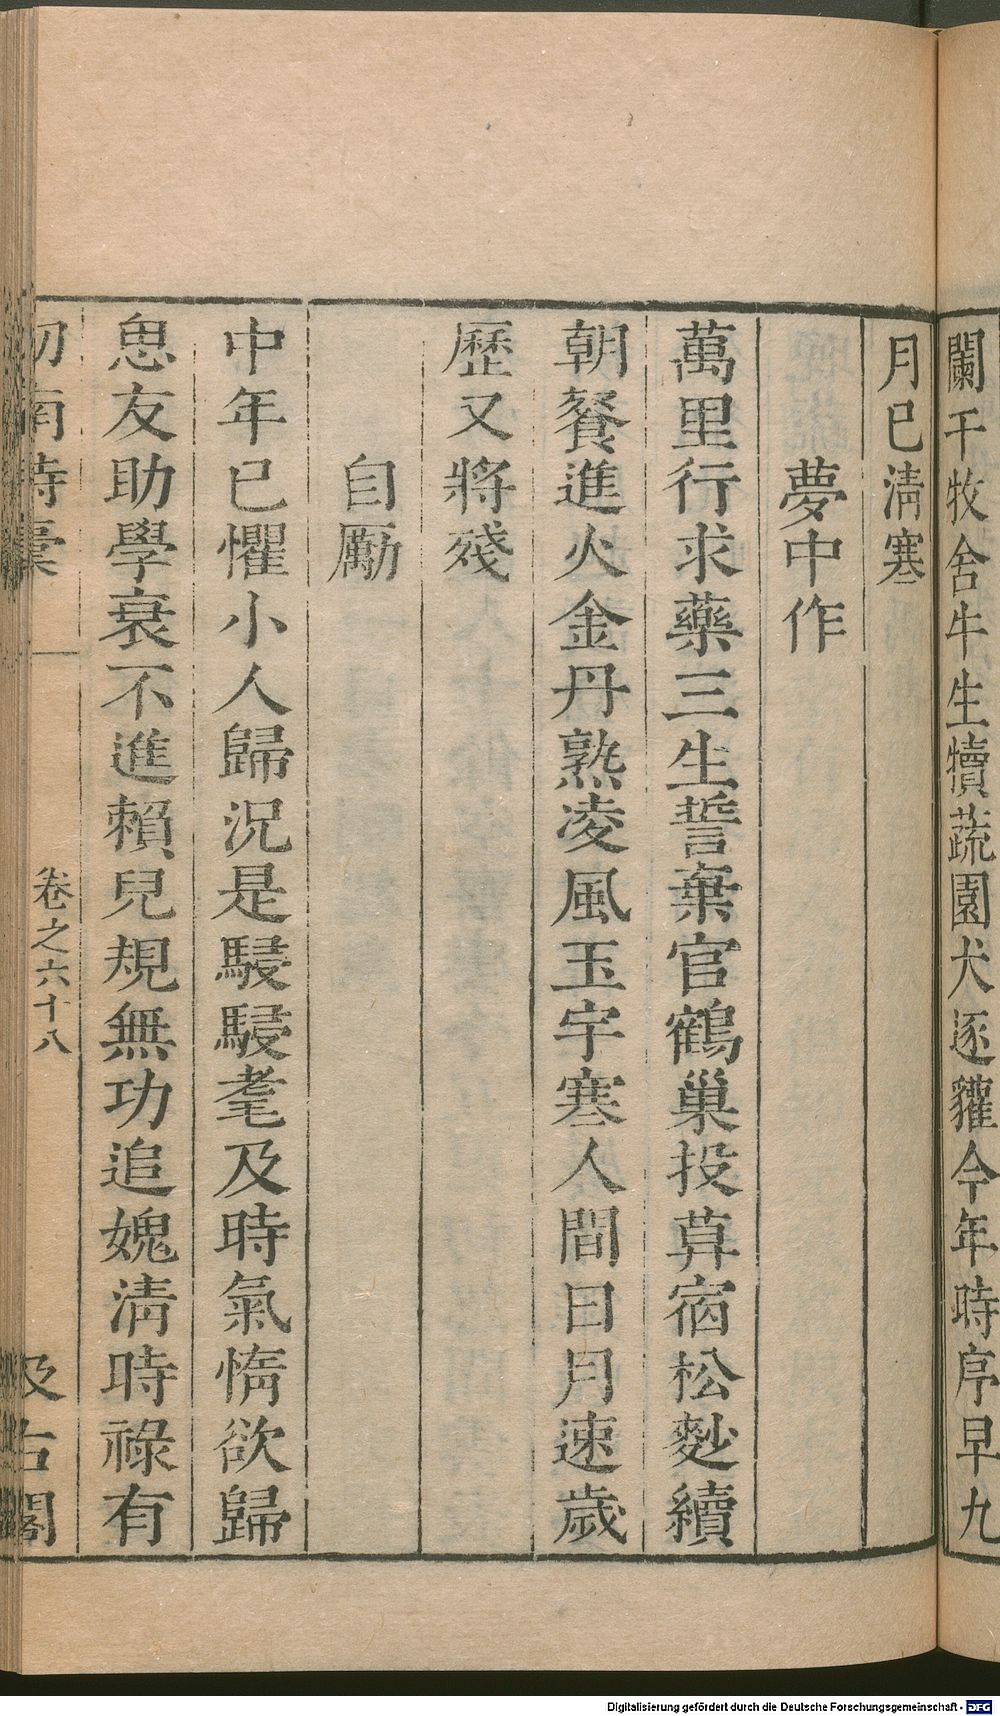 闌干牧舍牛生犢蔬園犬逐貛今年時序早九
月已淸寒
夢中作
萬里行求藥三生誓棄官鶴巢投暮宿松麨續
朝餐進火金丹熟凌風玉宇寒人間日月速歲
歷又將殘
自勵
中年已懼小人歸況是駸駸耄及時氣惰欲歸
思友助學衰不進賴兒規無功追媿淸時祿有
劒南詩稾 卷之六十八 汲古閣
Digitalisierung gefördert durch die Deutsche Forschungsgemeinschaft - DFG